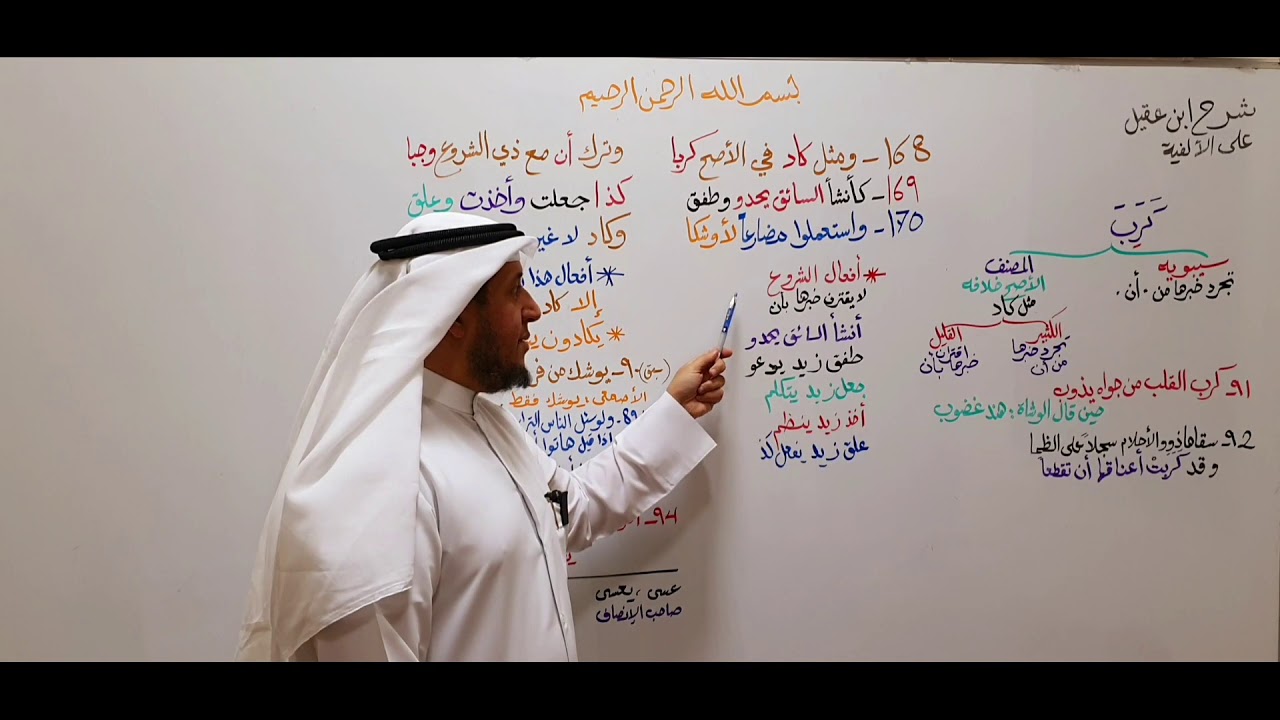 بسم الله الرحمن الرحيم
شرح ابن عقيل
على الألفية
168- ومثل كاد في الأصح كربا وترك أن مع ذي الشروع وجبا
169- كأنشأ السائق يحدو وطفق كذا جعلت وأخذت وعلق
170- واستعملوا مضارعاً لأوشكا وكاد لا غير
كَرَبَ
سيبويه
تجرد خبرها من "أن".
المصنف
الأصح خلافه
مثل كاد
الكثير
تجرد خبرها
من أن
القليل
اقتران
خبرها بأن
91- كرب القلب من جواه يذوب
حين قال الوشاة: هند غضوب
92- سقاها ذوو الأحلام سجلاً على الظما
وقد كَرَبَتْ أعناقها أن تقطعا
* أفعال الشروع
لا يقترن خبرها بأن
أنشأ السائق يحدو
طفق زيد يدعو
جعل زيد يتكلم
أخذ زيد ينظم
علق زيد يفعل كذا
* أفعال هذا
إلا كاد
* يكادون
(سبق) 90- يوشك من فر
الأصمعي: يوشك فقط
89- ولو سئل الناس الترا
إذا قيل هاتوا أ
94-
عسى، يعسى
صاحب الإنصاف